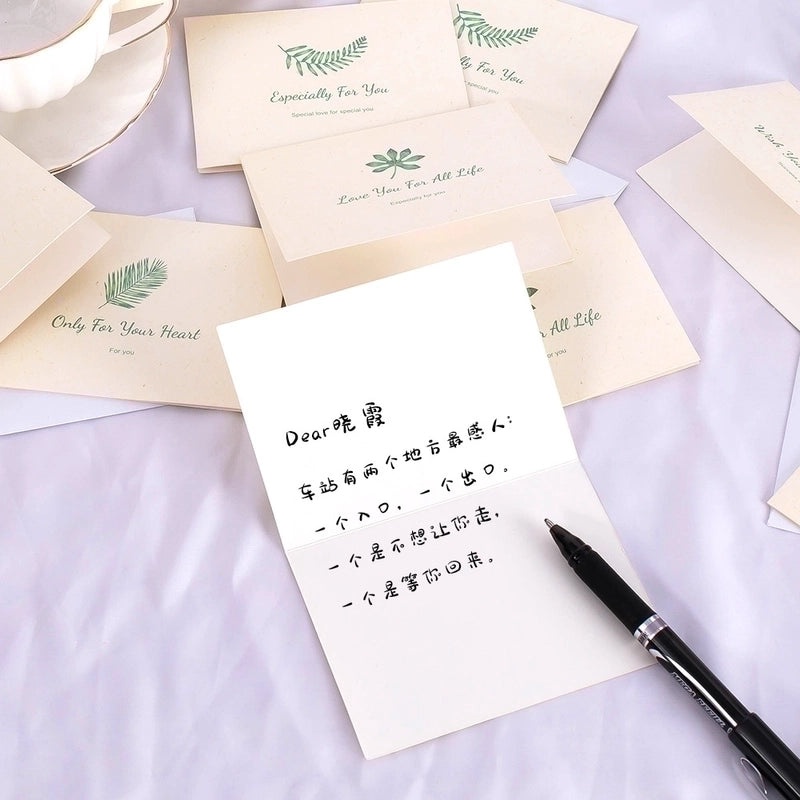 Especially For You
Special love for special you
y For You
Love You For All Life
Especially for you
Only For Your Heart
For you
All Life
you
Wish You
Dear晓霞
车站有两个地方最感人:
一个入口，一个出口。
一个是不想让你走，
一个是等你回来。